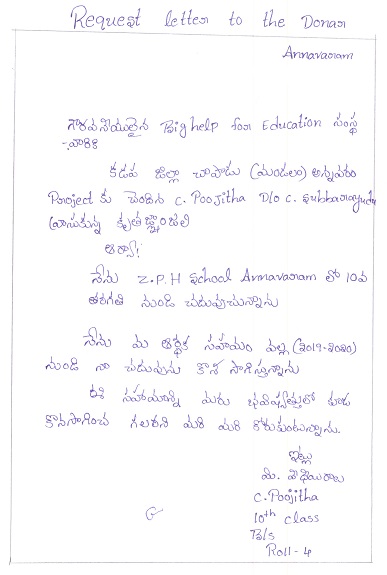 Request letter to the Donar
Annavaram
గౌరవనీయులైన Big help for Education సంస్థ
వారికి
కడప జిల్లా చాపాడు (మండలం) అన్నవరం
Project కు చెందిన C. Poojitha D/o C. Subbarayudu
వ్రాసుకున్న కృతజ్ఞాంజలి
ఆర్యా!
నేను Z.P.H School Annavaram లో 10వ
తరగతి నుండి చదువుచున్నాను
నేను మీ ఆర్థిక సహాయం వల్ల (2019-2020)
నుండి నా చదువును కొన సాగిస్తున్నాను
ఈ సహాయాన్ని మీరు భవిష్యత్తులో కూడ
కొనసాగించ గలరని మరి మరి కోరుకుంటున్నాను.
ఇట్లు
మీ విధేయురాలు
C. Poojitha
10th class
Roll - 4